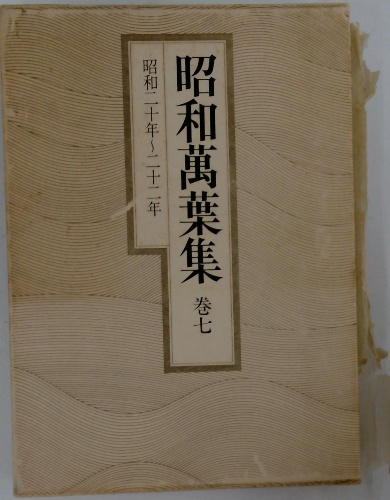 昭和萬葉集 巻七
昭和二十年～二十二年